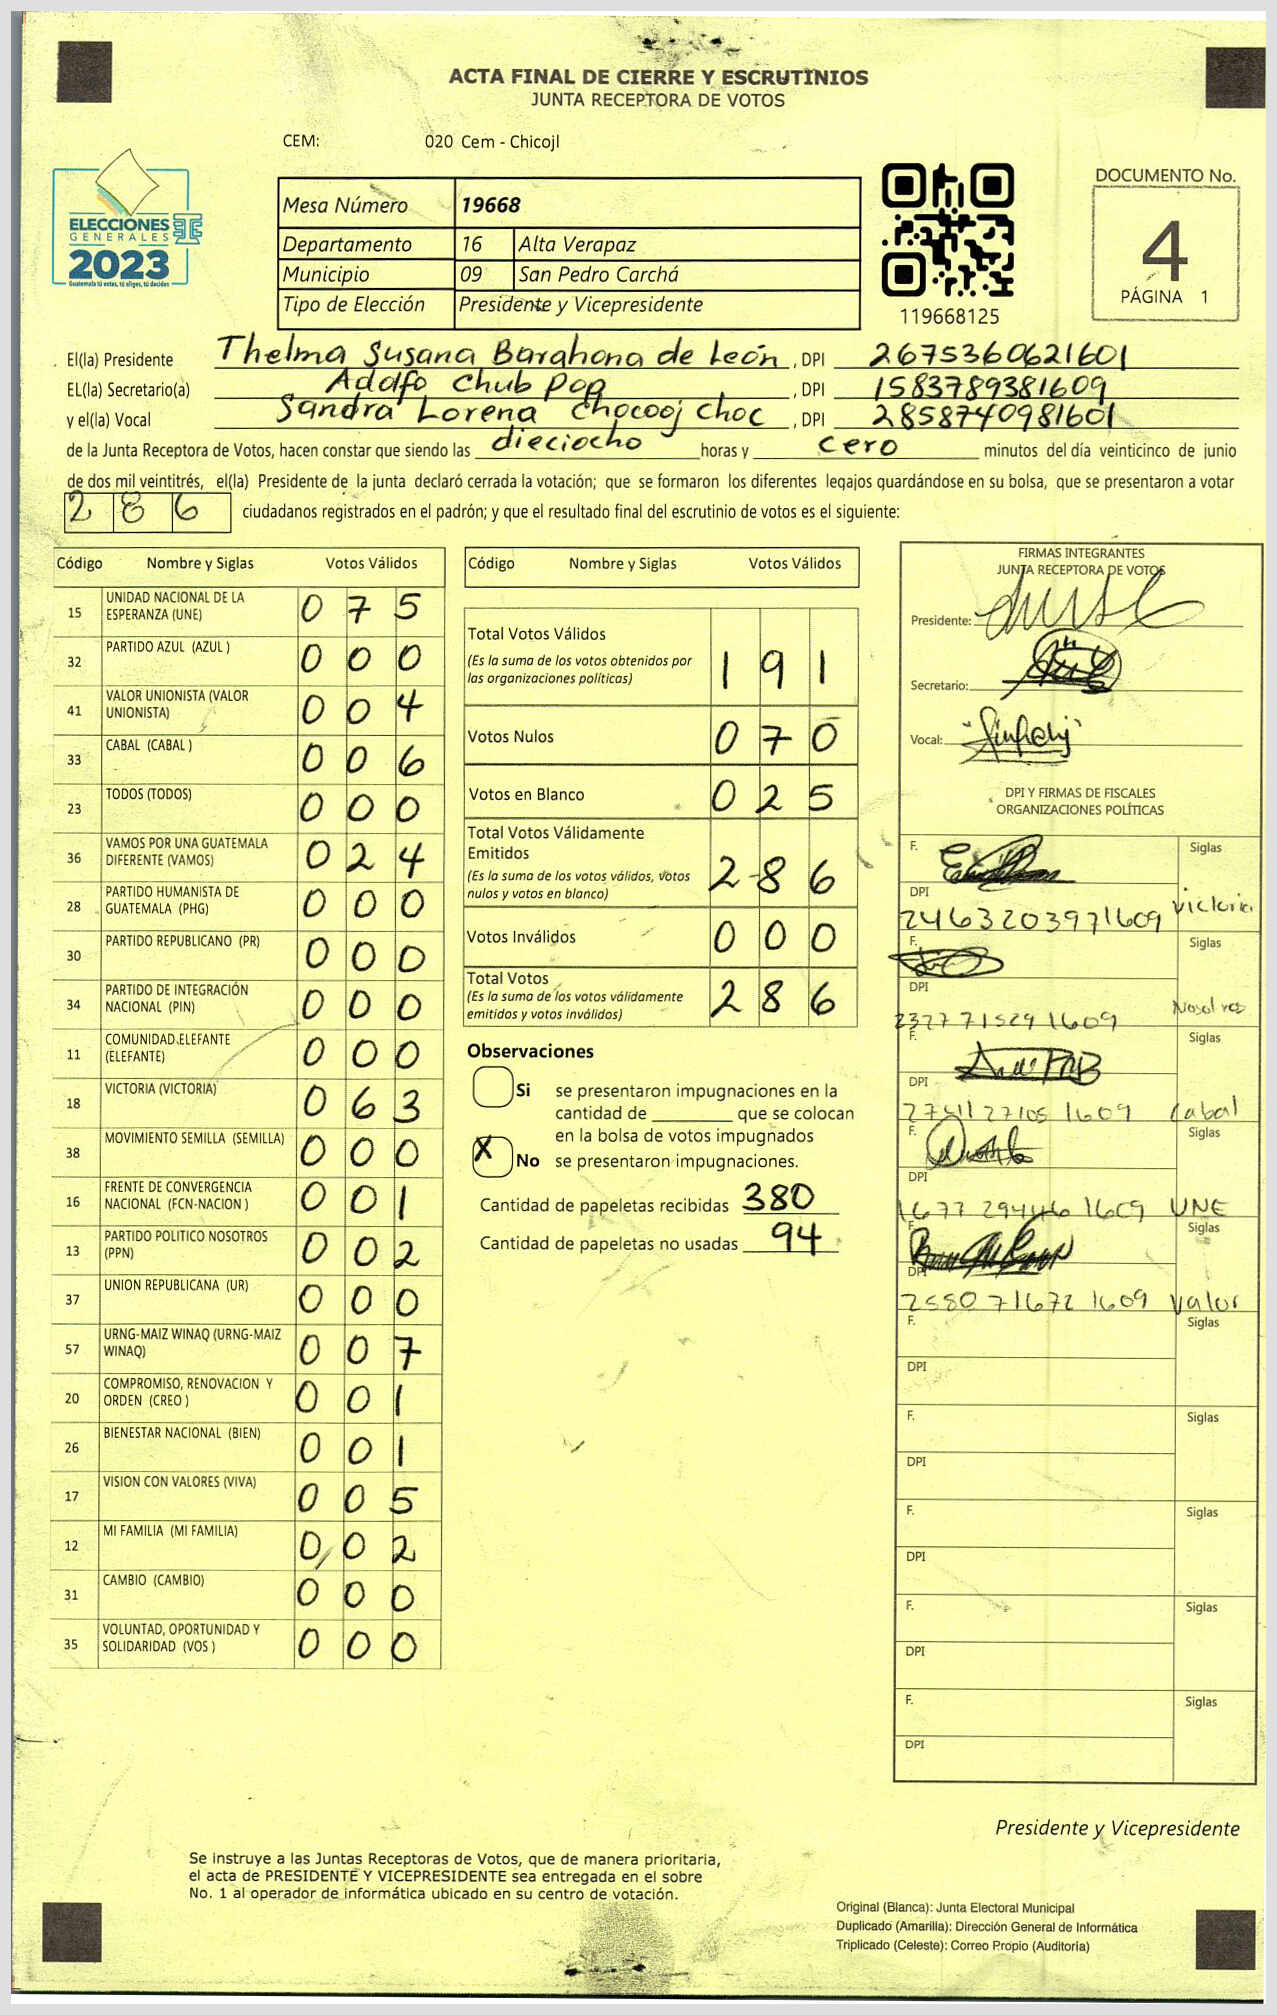 ACTA FINAL DE CIERRE Y ESCRUTINIOS
JUNTA RECEPTORA DE VOTOS
CEM: 020 Cem - Chicojl
ELECCIONES
GENERALES
2023
Guatemala tú votas, tú eliges, tú decides
Mesa Número 19668
Departamento 16 Alta Verapaz
Municipio 09 San Pedro Carchá
Tipo de Elección Presidente y Vicepresidente
119668125
DOCUMENTO No.
4
PÁGINA 1
El(la) Presidente Thelma Susana Barahona de León, DPI 2675360621601
EL(la) Secretario(a) Adolfo Chub Pop, DPI 1583789381609
y el(la) Vocal Sandra Lorena Chocooj Choc, DPI 2858740981601
de la Junta Receptora de Votos, hacen constar que siendo las dieciocho horas y cero minutos del día veinticinco de junio
de dos mil veintitrés, el(la) Presidente de la junta declaró cerrada la votación; que se formaron los diferentes legajos guardándose en su bolsa, que se presentaron a votar
286 ciudadanos registrados en el padrón; y que el resultado final del escrutinio de votos es el siguiente:
Código Nombre y Siglas Votos Válidos
15 UNIDAD NACIONAL DE LA ESPERANZA (UNE) 0 7 5
32 PARTIDO AZUL (AZUL ) 0 0 0
41 VALOR UNIONISTA (VALOR UNIONISTA) 0 0 4
33 CABAL (CABAL ) 0 0 6
23 TODOS (TODOS) 0 0 0
36 VAMOS POR UNA GUATEMALA DIFERENTE (VAMOS) 0 2 4
28 PARTIDO HUMANISTA DE GUATEMALA (PHG) 0 0 0
30 PARTIDO REPUBLICANO (PR) 0 0 0
34 PARTIDO DE INTEGRACIÓN NACIONAL (PIN) 0 0 0
11 COMUNIDAD ELEFANTE (ELEFANTE) 0 0 0
18 VICTORIA (VICTORIA) 0 6 3
38 MOVIMIENTO SEMILLA (SEMILLA) 0 0 0
16 FRENTE DE CONVERGENCIA NACIONAL (FCN-NACION ) 0 0 1
13 PARTIDO POLITICO NOSOTROS (PPN) 0 0 2
37 UNION REPUBLICANA (UR) 0 0 0
57 URNG-MAIZ WINAQ (URNG-MAIZ WINAQ) 0 0 7
20 COMPROMISO, RENOVACION Y ORDEN (CREO ) 0 0 1
26 BIENESTAR NACIONAL (BIEN) 0 0 1
17 VISION CON VALORES (VIVA) 0 0 5
12 MI FAMILIA (MI FAMILIA) 0 0 2
31 CAMBIO (CAMBIO) 0 0 0
35 VOLUNTAD, OPORTUNIDAD Y SOLIDARIDAD (VOS ) 0 0 0
Código Nombre y Siglas Votos Válidos
Total Votos Válidos 1 9 1
(Es la suma de los votos obtenidos por
las organizaciones políticas)
Votos Nulos 0 7 0
Votos en Blanco 0 2 5
Total Votos Válidamente
Emitidos 2 8 6
(Es la suma de los votos válidos, votos
nulos y votos en blanco)
Votos Inválidos 0 0 0
Total Votos 2 8 6
(Es la suma de los votos válidamente
emitidos y votos inválidos)
Observaciones
Si se presentaron impugnaciones en la
cantidad de ________ que se colocan
en la bolsa de votos impugnados
X No se presentaron impugnaciones.
Cantidad de papeletas recibidas 380
Cantidad de papeletas no usadas 94
FIRMAS INTEGRANTES
JUNTA RECEPTORA DE VOTOS
Presidente:
Secretario:
Vocal:
DPI Y FIRMAS DE FISCALES
ORGANIZACIONES POLÍTICAS
F. Siglas
DPI
2463203971609 Victoria
F. Siglas
DPI
2327715291609 Nosotros
F. Siglas
DPI
1609 Cabal
F. Siglas
DPI
1609 UNE
F. Siglas
DPI
2580716721609 Valor
F. Siglas
DPI
F. Siglas
DPI
F. Siglas
DPI
F. Siglas
DPI
F. Siglas
DPI
Presidente y Vicepresidente
Se instruye a las Juntas Receptoras de Votos, que de manera prioritaria,
el acta de PRESIDENTE Y VICEPRESIDENTE sea entregada en el sobre
No. 1 al operador de informática ubicado en su centro de votación.
Original (Blanca): Junta Electoral Municipal
Duplicado (Amarilla): Dirección General de Informática
Triplicado (Celeste): Correo Propio (Auditoría)